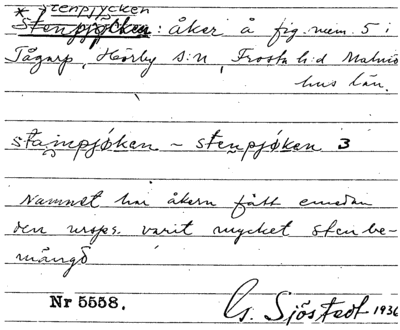 * Stenpjycken
Stenpjycken: åker å fig. num. 5 i
Tågarp, Hörby s:n, Frosta h:d Malmö
hus län.
stain̥pjøken ~ sten̥pjøken 3
Namnet har åkern fått emedan
den urspr. varit mycket stenbe-
mängd
Nr 5558.
G. Sjöstedt 1936